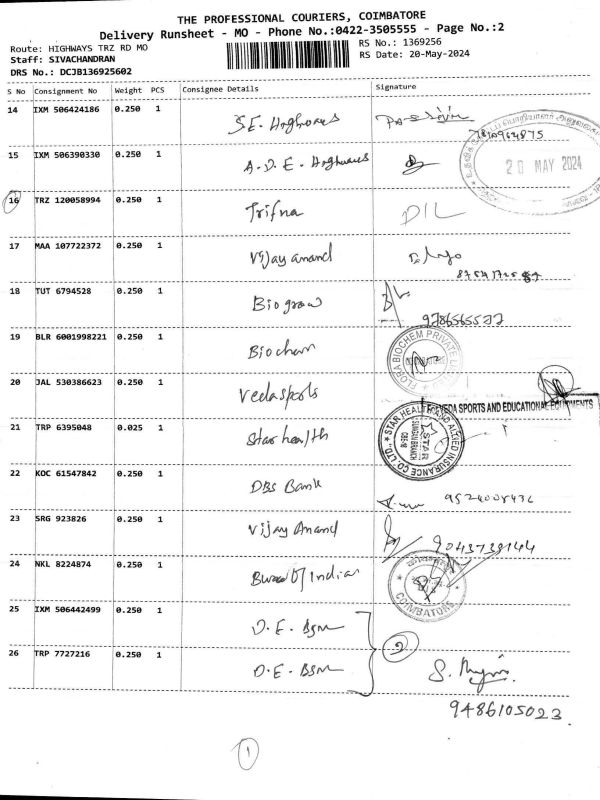 THE PROFESSIONAL COURIERS, COIMBATORE
Delivery Runsheet - MO - Phone No.:0422-3505555 - Page No.:2
Route: HIGHWAYS TRZ RD MO
RS No.: 1369256
Staff: SIVACHANDRAN
RS Date: 20-May-2024
DRS No.: DCJB136925602
S No Consignment No Weight PCS Consignee Details Signature
14 IXM 506424186 0.250 1 S.E. Highways
15 IXM 506390330 0.250 1 A.D.E. Highways
20 MAY 2024
16 TRZ 120058994 0.250 1 Trifna DIL
17 MAA 107722372 0.250 1 Vijay anand
18 TUT 6794528 0.250 1 Biogrow
19 BLR 6001998221 0.250 1 Biochem
FLORA BIOCHEM PRIVATE
20 JAL 530386623 0.250 1 Veda sports
VEDA SPORTS AND EDUCATIONAL EQUIPMENTS
21 TRP 6395048 0.025 1 Star health
STAR HEALTH AND ALLIED INSURANCE CO LTD.,
STAR
22 KOC 61547842 0.250 1 DBS Bank
23 SRG 923826 0.250 1 Vijay Anand
9043739144
24 NKL 8224874 0.250 1 of Indian
COIMBATORE
25 IXM 506442499 0.250 1 D.E. BSM
2
26 TRP 7727216 0.250 1 D.E. BSM
9486105023
1